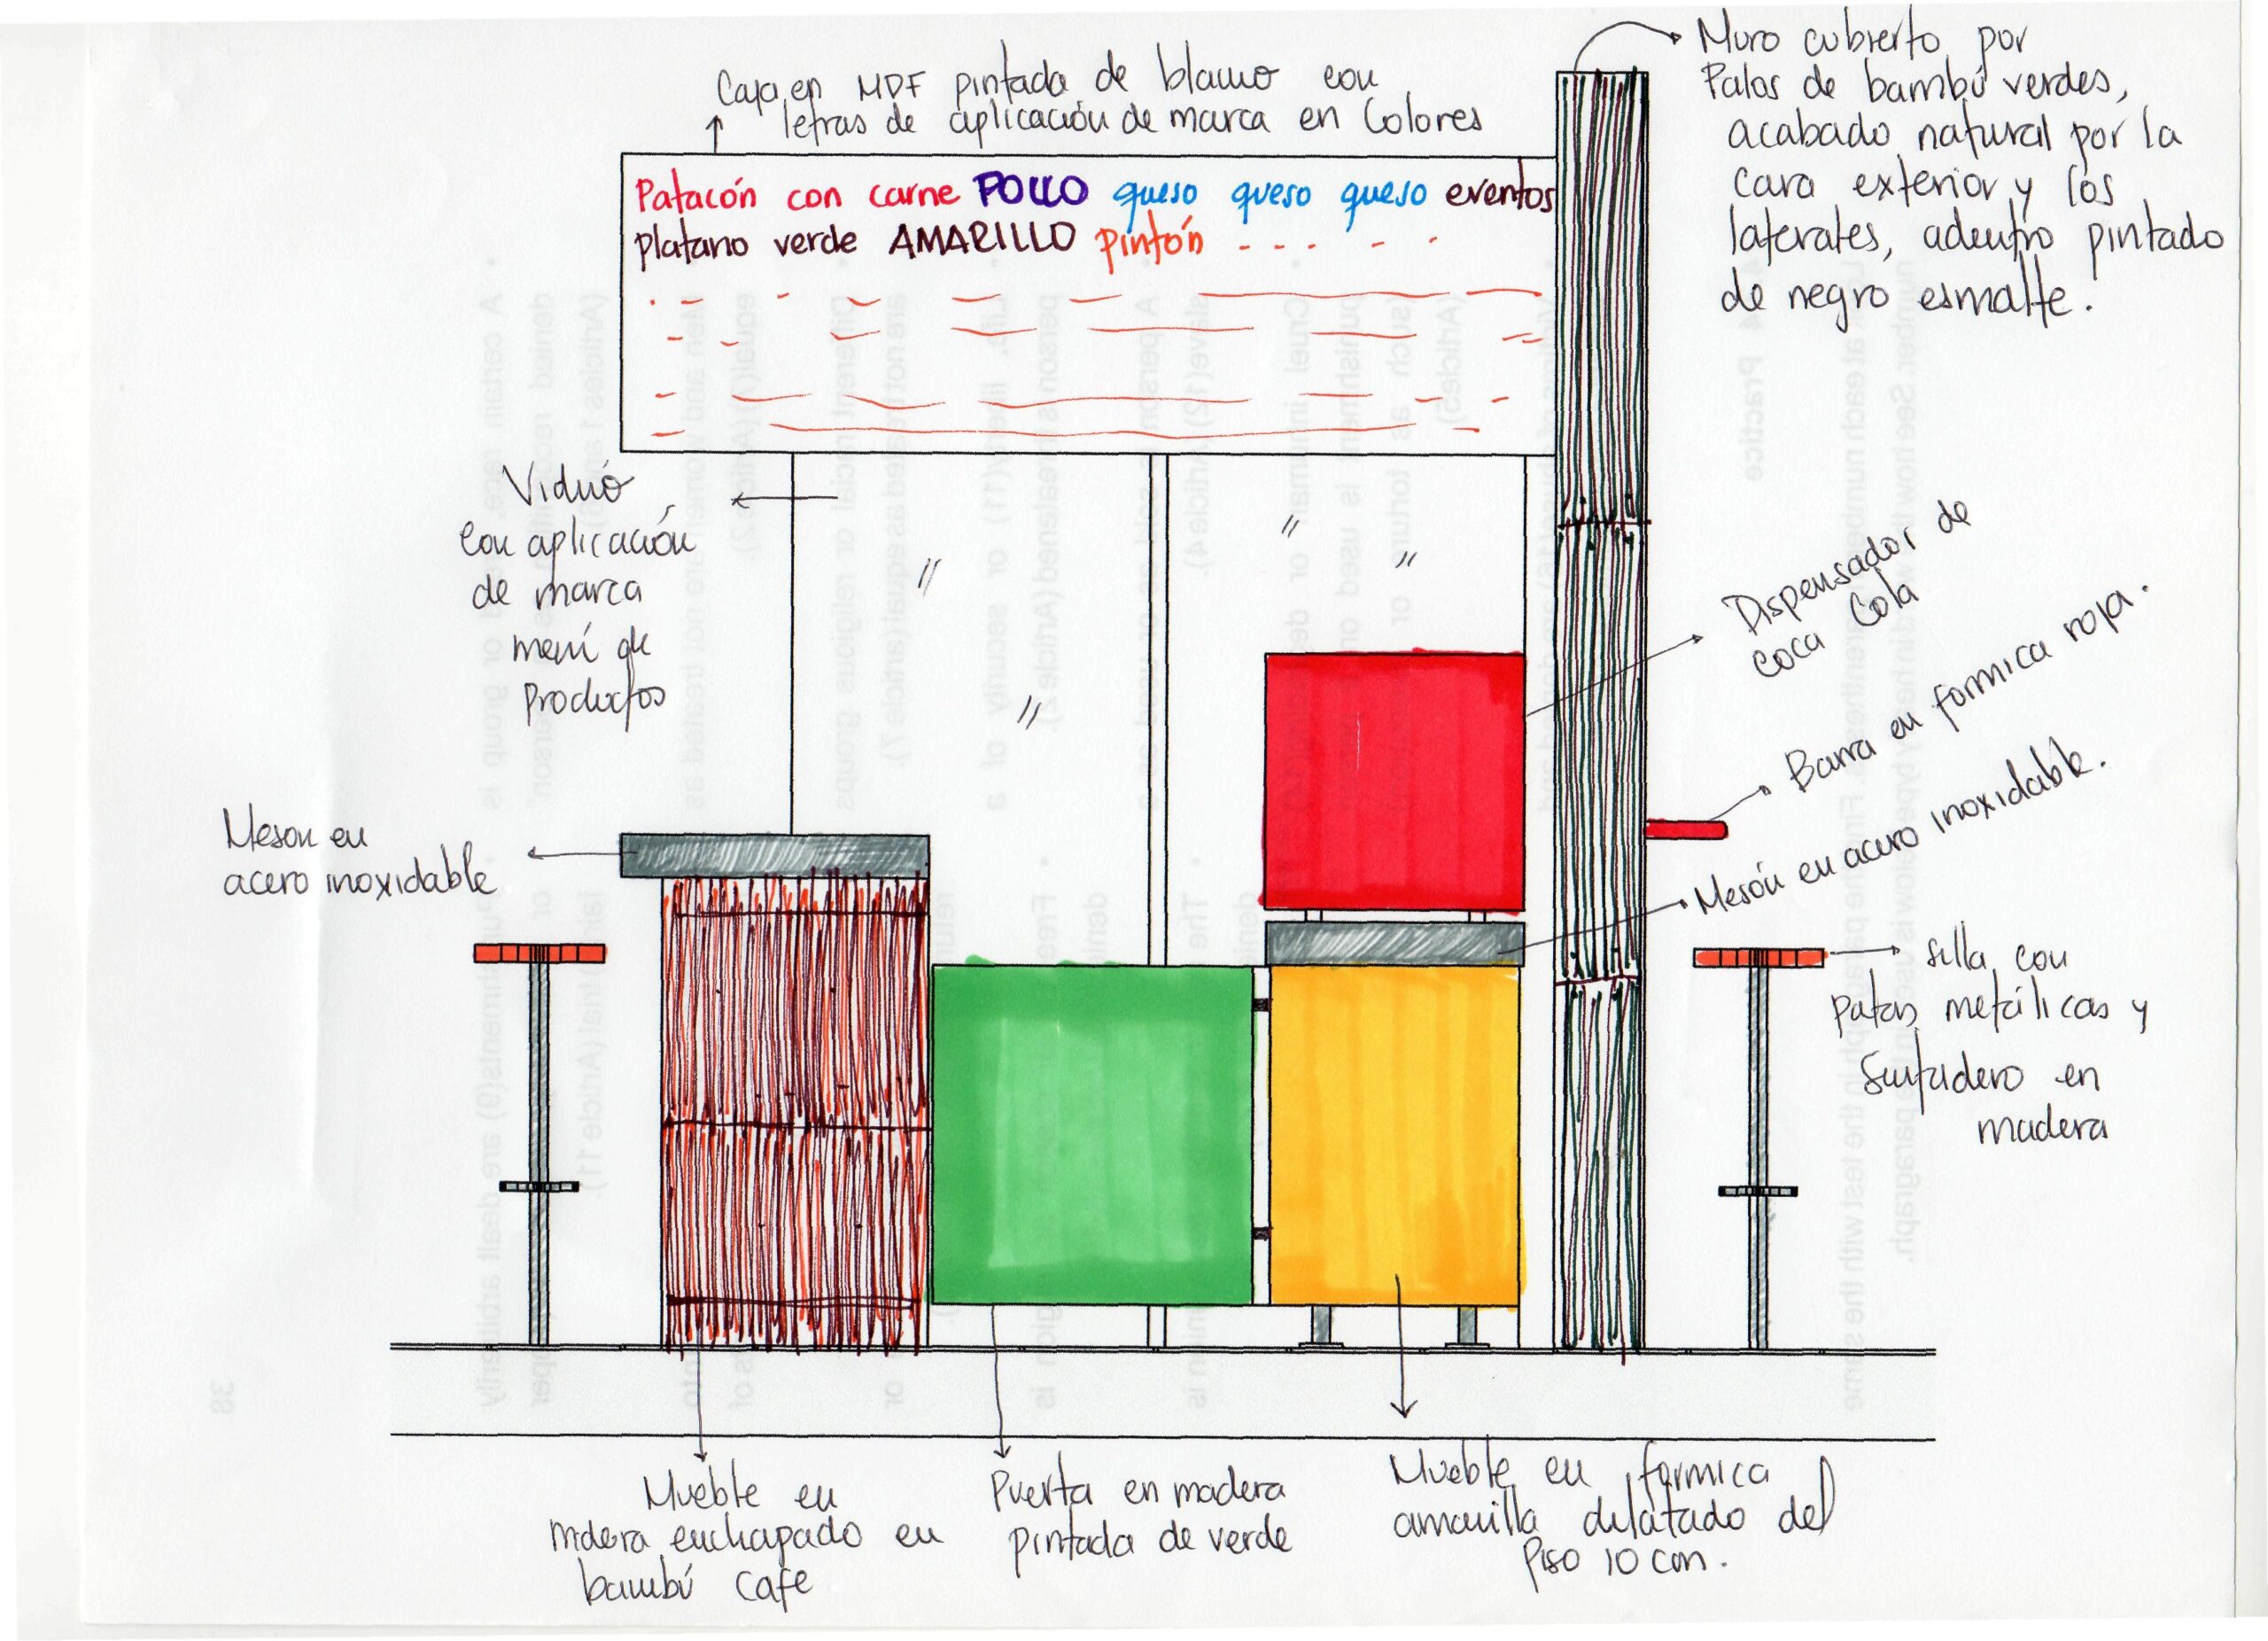 Caja en MDF pintada de blanco con
letras de aplicación de marca en Colores
Muro cubierto por
Palos de bambú verdes,
acabado natural por la
cara exterior y los
laterales, adentro pintado
de negro esmalte.
Patacón con carne POLLO queso queso queso eventos
platano verde AMARILLO pintón - - - - -
Vidrio
con aplicación
de marca
menú de
Productos
Dispensador de
Coca Cola
Barra en formica roja.
Mesón en acero inoxidable.
Meson en
acero inoxidable
silla con
Patas metálicas y
Sentadero en
madera
Mueble en
mdera enchapado en
bambú cafe
Puerta en madera
pintada de verde
Mueble en formica
amarilla dilatado del
Piso 10 cm.